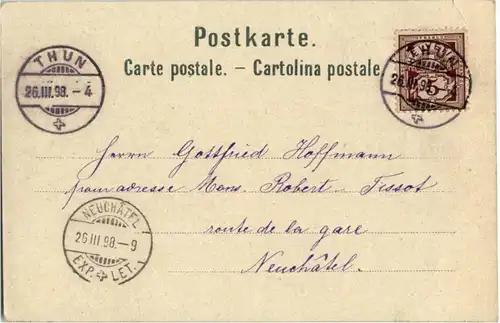 Postkarte.
Carte postale. – Cartolina postale.
THUN
26.III.98.–4
THUN
26.III.98.
5
Herrn Gottfried Hoffmann
pour adresse Mons. Robert-Tissot
route de la gare
Neuchâtel.
NEUCHÂTEL
26 III 98.–9
EXP. LET.